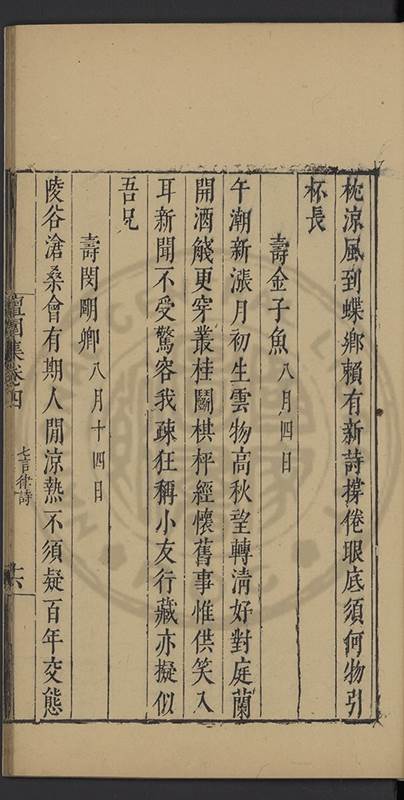 枕涼風到蝶鄉賴有新詩撐倦眼底須何物引
杯長
壽金子魚八月四日
午潮新漲月初生雲物高秋望轉清好對庭蘭
開酒觴更穿叢桂鬭棋枰經懷舊事惟供笑入
耳新聞不受驚容我疎狂稱小友行藏亦擬似
吾兄
壽閔䎽卿八月十四日
陵谷滄桑會有期人間涼熱不須疑百年交態
集卷四
七言律詩
六